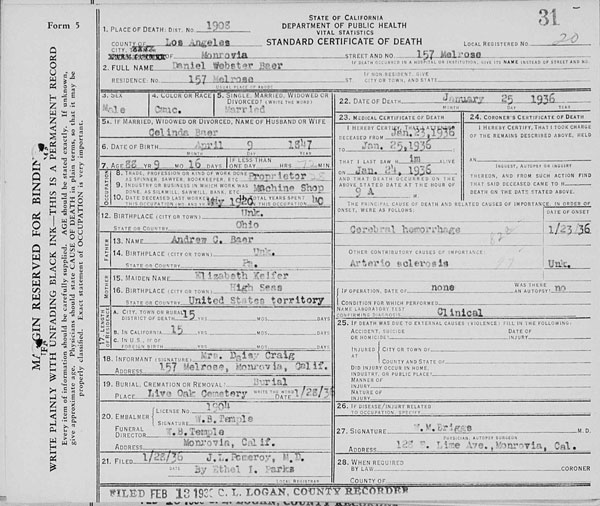 Form 5
MARGIN RESERVED FOR BINDING
WRITE PLAINLY WITH UNFADING BLACK INK—THIS IS A PERMANENT RECORD
Every item of information should be carefully supplied. AGE should be stated exactly. If unknown,
give approximate age. Physicians should state CAUSE OF DEATH in plain terms, so that it may be
properly classified. Exact statement of OCCUPATION is very important.
STATE OF CALIFORNIA
DEPARTMENT OF PUBLIC HEALTH
VITAL STATISTICS
STANDARD CERTIFICATE OF DEATH
31
LOCAL REGISTERED NO. 20
1. PLACE OF DEATH: DIST. NO. 1903
COUNTY OF Los Angeles
CITY, OF Monrovia
STREET AND NO. 157 Melrose
IF DEATH OCCURRED IN A HOSPITAL OR INSTITUTION, GIVE ITS NAME INSTEAD OF STREET AND NO.
2. FULL NAME Daniel Webster Baer
RESIDENCE: NO. 157 Melrose
USUAL PLACE OF ABODE
IF NON-RESIDENT, GIVE
ST. CITY OR TOWN, AND STATE
3. SEX Male
4. COLOR OR RACE Cauc.
5. SINGLE, MARRIED, WIDOWED OR
DIVORCED? (WRITE THE WORD)
Married
5A. IF MARRIED, WIDOWED OR DIVORCED, NAME OF HUSBAND OR WIFE
Celinda Baer
6. DATE OF BIRTH April 9 1847
MONTH DAY YEAR
7. AGE 88 YR 9 MO 16 DAYS
IF LESS THAN
ONE DAY HRS MIN.
OCCUPATION
8. TRADE, PROFESSION OR KIND OF WORK DONE
AS SPINNER, SAWYER, BOOKKEEPER, ETC. Proprietor
9. INDUSTRY OR BUSINESS IN WHICH WORK WAS
DONE, AS SILKMILL, SAWMILL, BANK, ETC. Machine Shop
10. DATE DECEASED LAST WORKED AT
THIS OCCUPATION (MO. AND YR.) May
TOTAL YEARS SPENT
IN THIS OCCUPATION 40
12. BIRTHPLACE (CITY OR TOWN) Unk.
STATE OR COUNTRY Ohio
FATHER
13. NAME Andrew C. Baer
14. BIRTHPLACE (CITY OR TOWN) Unk.
STATE OR COUNTRY Pa.
MOTHER
15. MAIDEN NAME Elizabeth Keifer
16. BIRTHPLACE (CITY OR TOWN) High Seas
STATE OR COUNTRY United States territory
17. LENGTH OF RESIDENCE
A. CITY, TOWN OR RURAL
DISTRICT OF DEATH 15 YRS MOS. DAYS
B. IN CALIFORNIA 15 YRS. MOS. DAYS
C. IN U.S., IF OF
FOREIGN BIRTH YRS. MOS. DAYS
18. INFORMANT (SIGNATURE) Mrs. Daisy Craig
ADDRESS 157 Melrose, Monrovia, Calif.
19. BURIAL, CREMATION OR REMOVAL? Burial
WRITE THE WORD
PLACE Live Oak Cemetery DATE 1/28/36
20. EMBALMER LICENSE NO. 1904
SIGNATURE W.B. Temple
FUNERAL
DIRECTOR W.B. Temple
ADDRESS Monrovia, Calif.
21. FILED 1/28/36 J.L. Pomeroy, M.D.
DATE
By Ethel I. Parks
LOCAL REGISTRAR
22. DATE OF DEATH January 25 1936
MONTH DAY YEAR
23. MEDICAL CERTIFICATE OF DEATH
I HEREBY CERTIFY, THAT I ATTENDED
DECEASED FROM Jan. 23, 1936
TO Jan. 25, 1936
THAT I LAST SAW H im ALIVE
ON Jan. 24, 1936
AND THAT DEATH OCCURRED ON THE
ABOVE STATED DATE AT THE HOUR OF
9 A M
24. CORONER'S CERTIFICATE OF DEATH
I HEREBY CERTIFY, THAT I TOOK CHARGE
OF THE REMAINS DESCRIBED ABOVE, HELD
AN
INQUEST, AUTOPSY OR INQUIRY
THEREON, AND FROM SUCH ACTION FIND
THAT SAID DECEASED CAME TO H
DEATH ON THE DATE STATED ABOVE.
THE PRINCIPAL CAUSE OF DEATH AND RELATED CAUSES OF IMPORTANCE, IN ORDER OF
ONSET, WERE AS FOLLOWS:
DATE OF ONSET
Cerebral hemorrhage 1/23/36
OTHER CONTRIBUTORY CAUSES OF IMPORTANCE:
Arterio sclerosis Unk.
IF OPERATION, DATE OF none
WAS THERE
AN AUTOPSY? no
CONDITION FOR WHICH PERFORMED
NAME LABORATORY TEST
CONFIRMING DIAGNOSIS Clinical
25. IF DEATH WAS DUE TO EXTERNAL CAUSES (VIOLENCE) FILL IN THE FOLLOWING:
ACCIDENT, SUICIDE
OR HOMICIDE
DATE OF
INJURY
INJURED AT
CITY OR TOWN OF
COUNTY AND STATE OF
DID INJURY OCCUR IN HOME,
INDUSTRY, OR PUBLIC PLACE?
MANNER OF
INJURY
NATURE OF
INJURY
26. IF DISEASE/INJURY RELATED
TO OCCUPATION, SPECIFY
27. SIGNATURE W.M. Briggs M.D.
PHYSICIAN, AUTOPSY SURGEON
ADDRESS Lime Ave., Monrovia, Cal.
28. WHEN REQUIRED
BY LAW CORONER
COUNTY OF
FILED FEB 13 C. L. LOGAN, COUNTY RECORDER